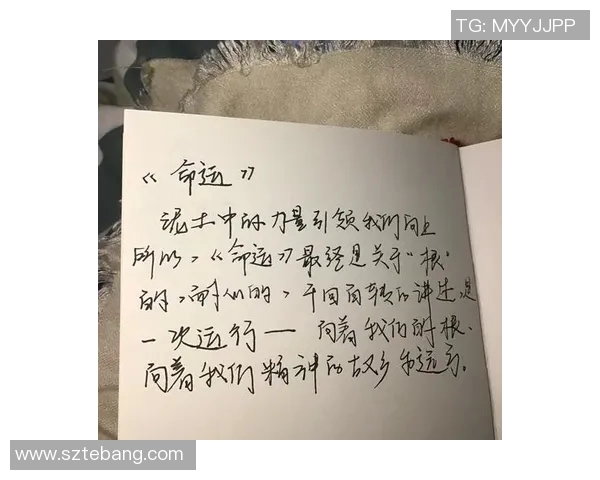 TG: MYYJJPP
《命运》
泥土中的力量引领我们向上
所以，《命运》最终是关于“根”
的，耐人的，千回百转的讲述，是
一次运行— 向着我们的根.
向着我们精神的故乡和远方。
www.sztebang.com